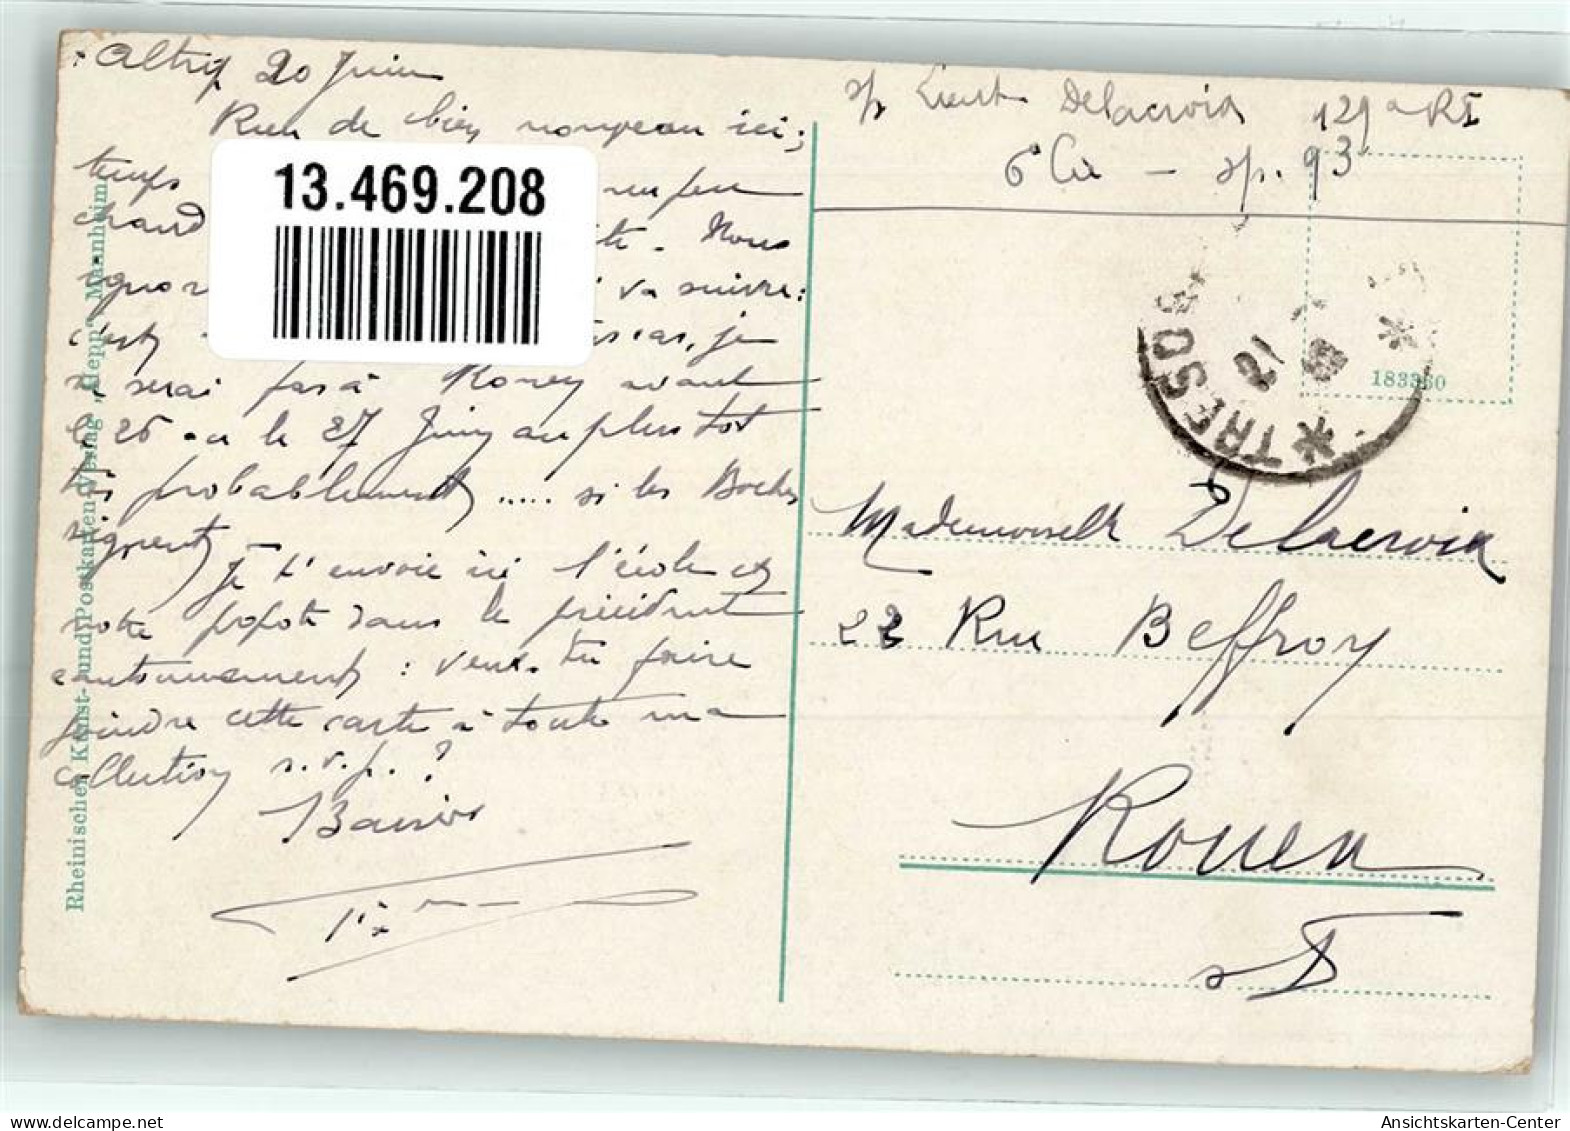 Altrip 20 Juin
Rien de bien nouveau ici;
temps un peu
chaud Nous
ignor va suivre:
c'est cas, je
ne serai pas à Rouen avant
le 26 ou le 27 Juin au plus tot
très probablement ..... si les Boches
signent
Je t'envoie ici l'école et
notre popote dans le précédent
cantonnement : veux-tu faire
joindre cette carte à toute ma
collection s.v.p. ?
Baisers
13.469.208
Rheinischer Kunst- und Postkarten-Verlag „Hepp“ Mannheim
Lieut Delacroix 129e RI
6e Cie - sp. 93
TRESOR
21
183360
Mademoiselle Delacroix
22 Rue Beffroy
Rouen
Ansichtskarten-Center
www.delcampe.net